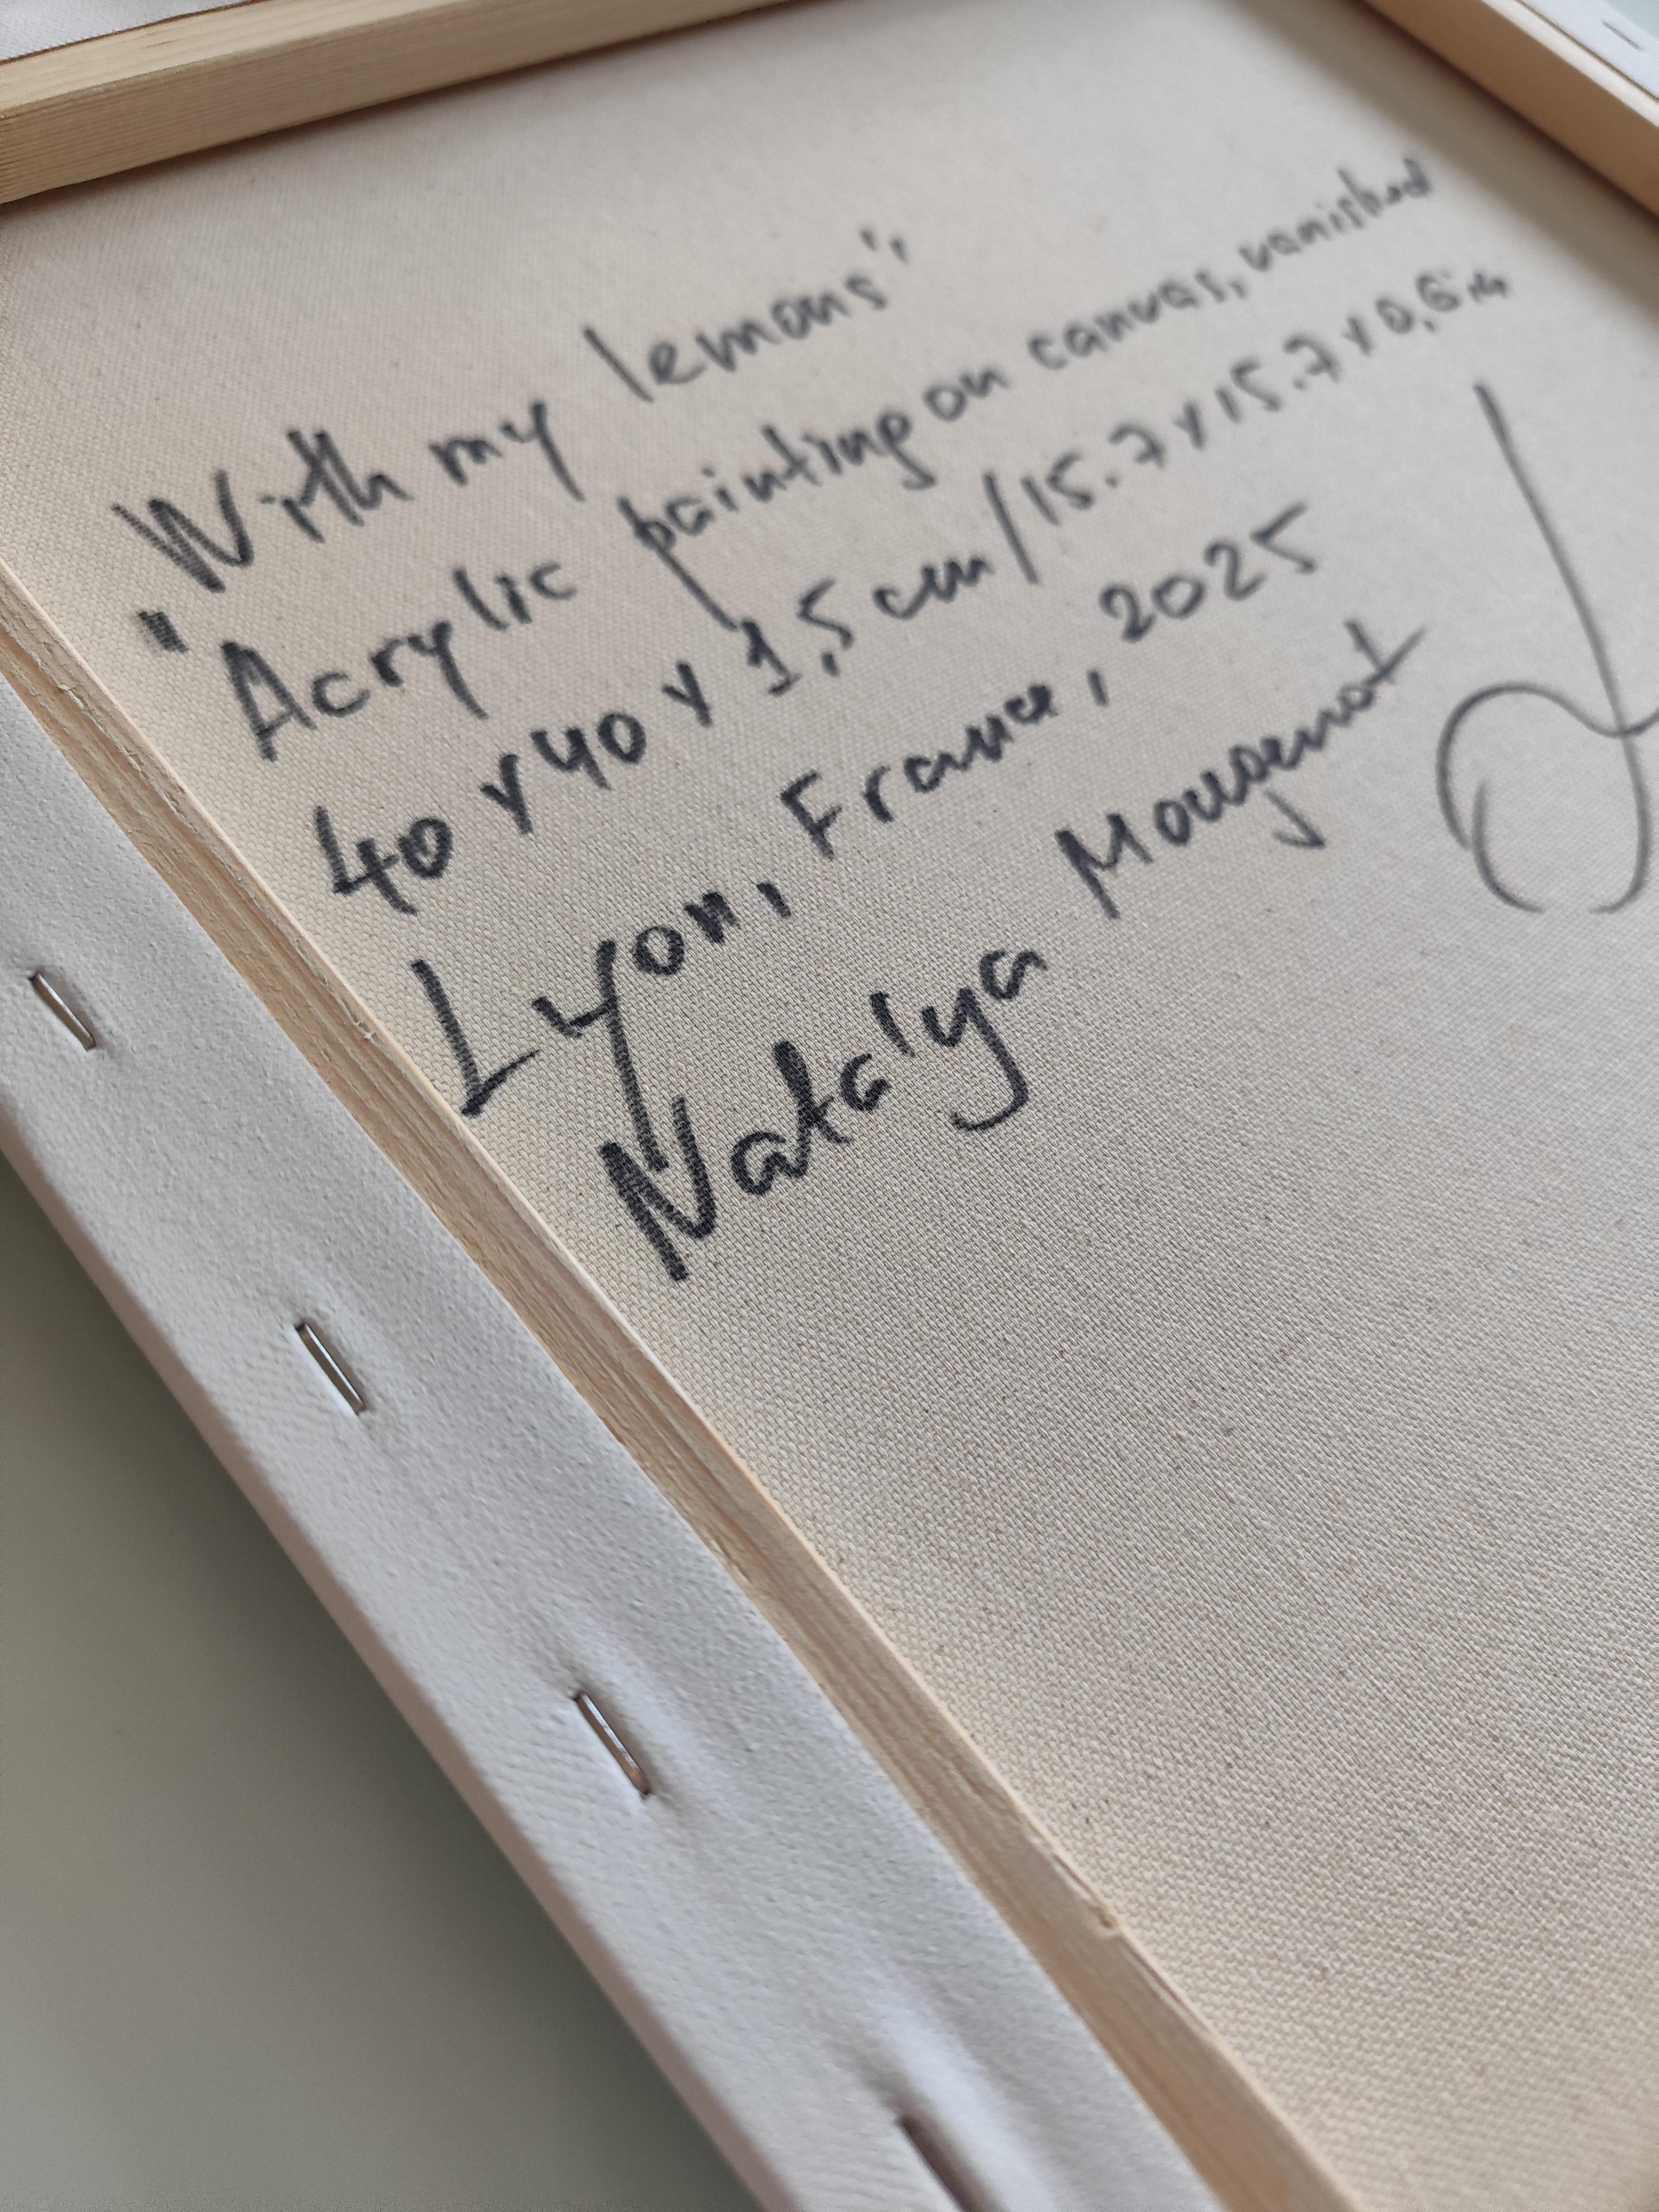 "With my lemons"
Acrylic painting on canvas, vanished
40 x 40 x 1,5 cm / 15.7 x 15.7 x 0,6 in
Lyon, France, 2025
Natalya Mougenot